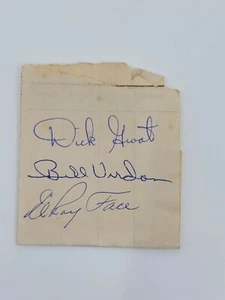 Dick Groat
Bill Virdon
ElRoy Face